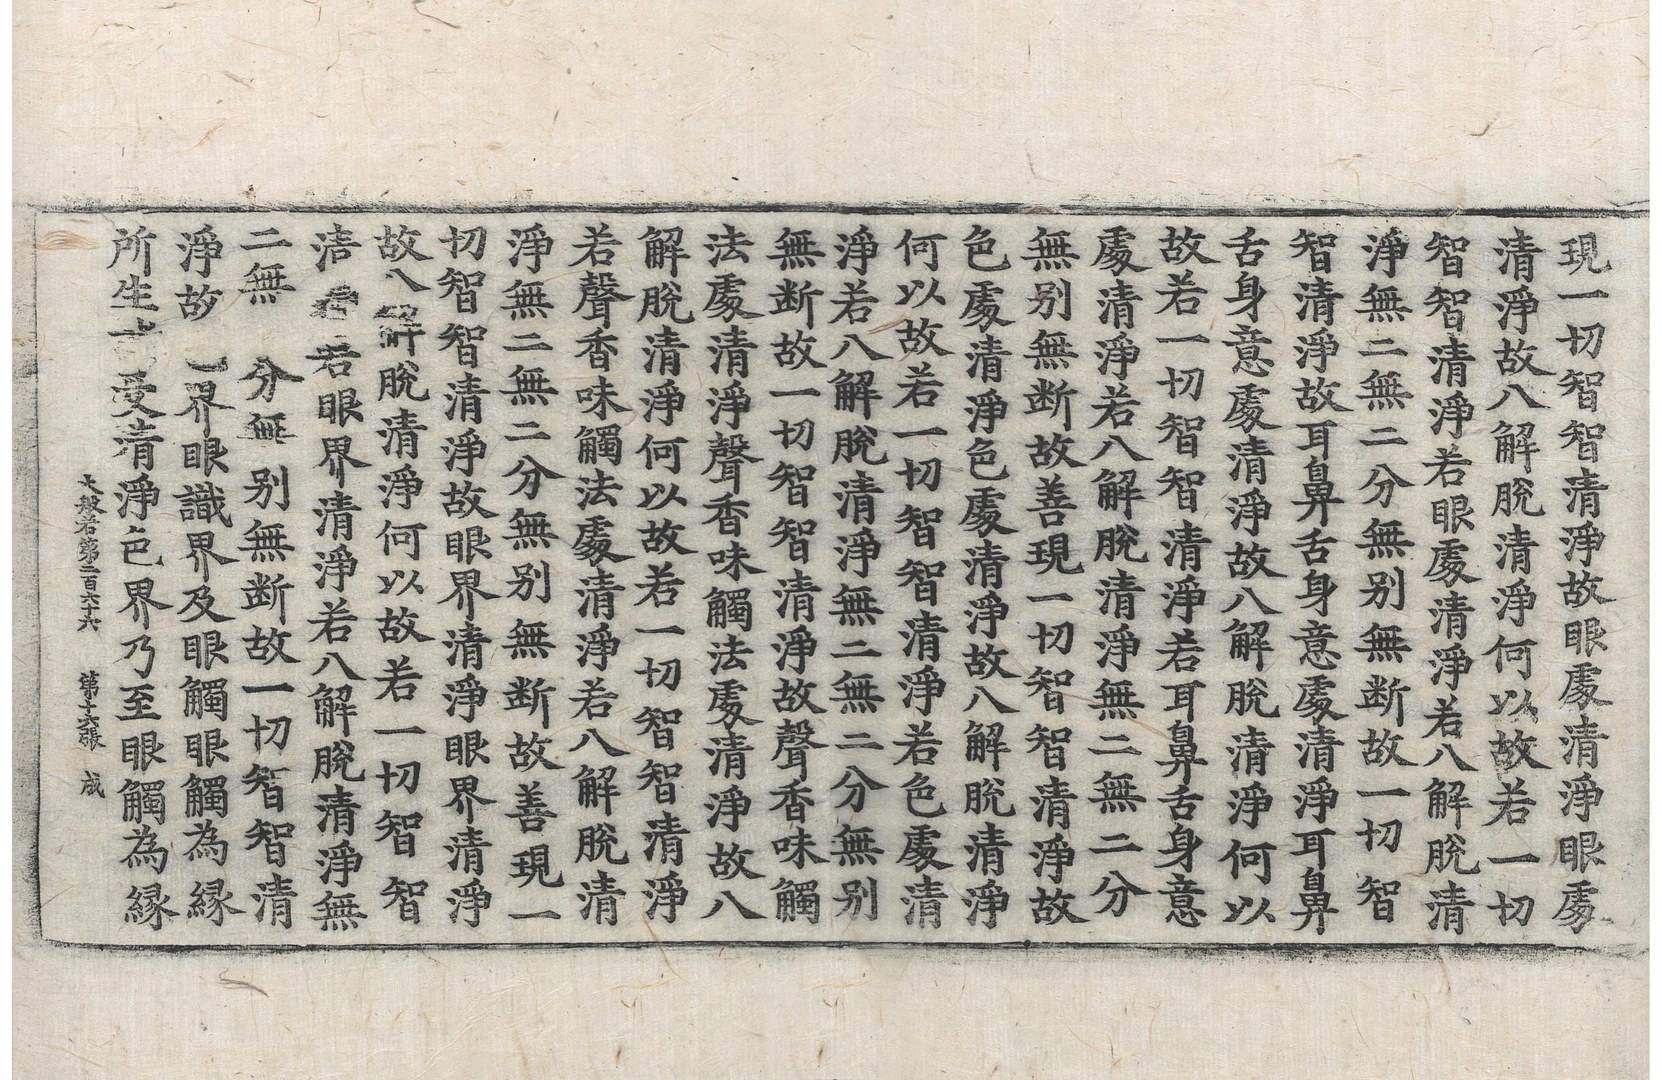 現一切智智清淨故眼處清淨眼處
清淨故八解脫清淨何以故若一切
智智清淨若眼處清淨若八解脫清
淨無二無二分無别無断故一切智
智清淨故耳鼻舌身意處清淨耳鼻
舌身意處清淨故八解脫清淨何以
故若一切智智清淨若耳鼻舌身意
處清淨若八解脫清淨無二無二分
無别無断故善現一切智智清淨故
色處清淨色處清淨故八解脫清淨
何以故若一切智智清淨若色處清
淨若八解脫清淨無二無二分無别
無断故一切智智清淨故聲香味觸
法處清淨聲香味觸法處清淨故八
解脫清淨何以故若一切智智清淨
若聲香味觸法處清淨若八解脫清
淨無二無二分無别無断故善現一
切智智清淨故眼界清淨眼界清淨
故八解脫清淨何以故若一切智智
若眼界清淨若八解脫清淨無
二無 分無别無断故一切智智清
淨故 界眼識界及眼觸眼觸為緣
所生 受清淨色界乃至眼觸為緣
大般若第二百六十六 第十六張 成